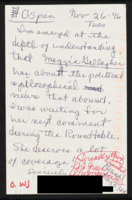 C Span Nov 26-96
Tues
I'm amazed at the
depth of understanding
that Maggie Gallagher
has about the political
& philosophical
news that abound.
I was waiting for
her next comment
during the Roundtable.
She deserves a lot
of coverage
Sincerely